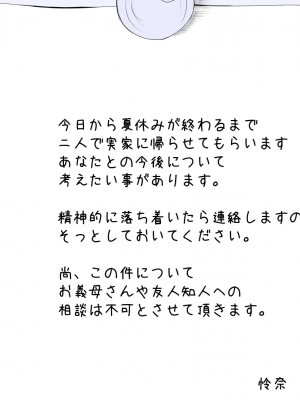 今日から夏休みが終わるまで
二人で実家に帰らせてもらいます
あなたとの今後について
考えたい事があります。
精神的に落ち着いたら連絡しますの
そっとしておいてください。
尚、この件について
お義母さんや友人知人への
相談は不可とさせて頂きます。
怜奈